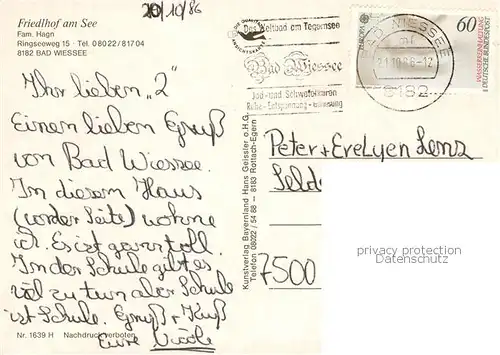 20/10/86
Friedlhof am See
Fam. Hagn
Ringseeweg 15 · Tel. 08022/81704
8182 BAD WIESSEE
Ihr lieben "2"
Einen lieben Gruß
von Bad Wiessee.
In diesem Haus
(vorder Seite) wohne
ich. Es ist ganz toll.
In der Schule gibt es
viel zu tun aber Schule
ist Schule. Gruß + Kuß
Eure Nicole
Nr. 1639 H Nachdruck verboten
Kunstverlag Bayernland Hans Geissler o.H.G.
Telefon 08022 / 54 88 – 8183 Rottach-Egern
Das Weltbad am Tegernsee
Bad Wiessee
Jod- und Schwefelkuren
Ruhe - Entspannung -
BAD WIESSEE
21.10.86-12
8182
EUROPA
60
WASSERREINHALTUNG
DEUTSCHE BUNDESPOST
Peter + Evelyen Lenz
7500
privacy protection
Datenschutz